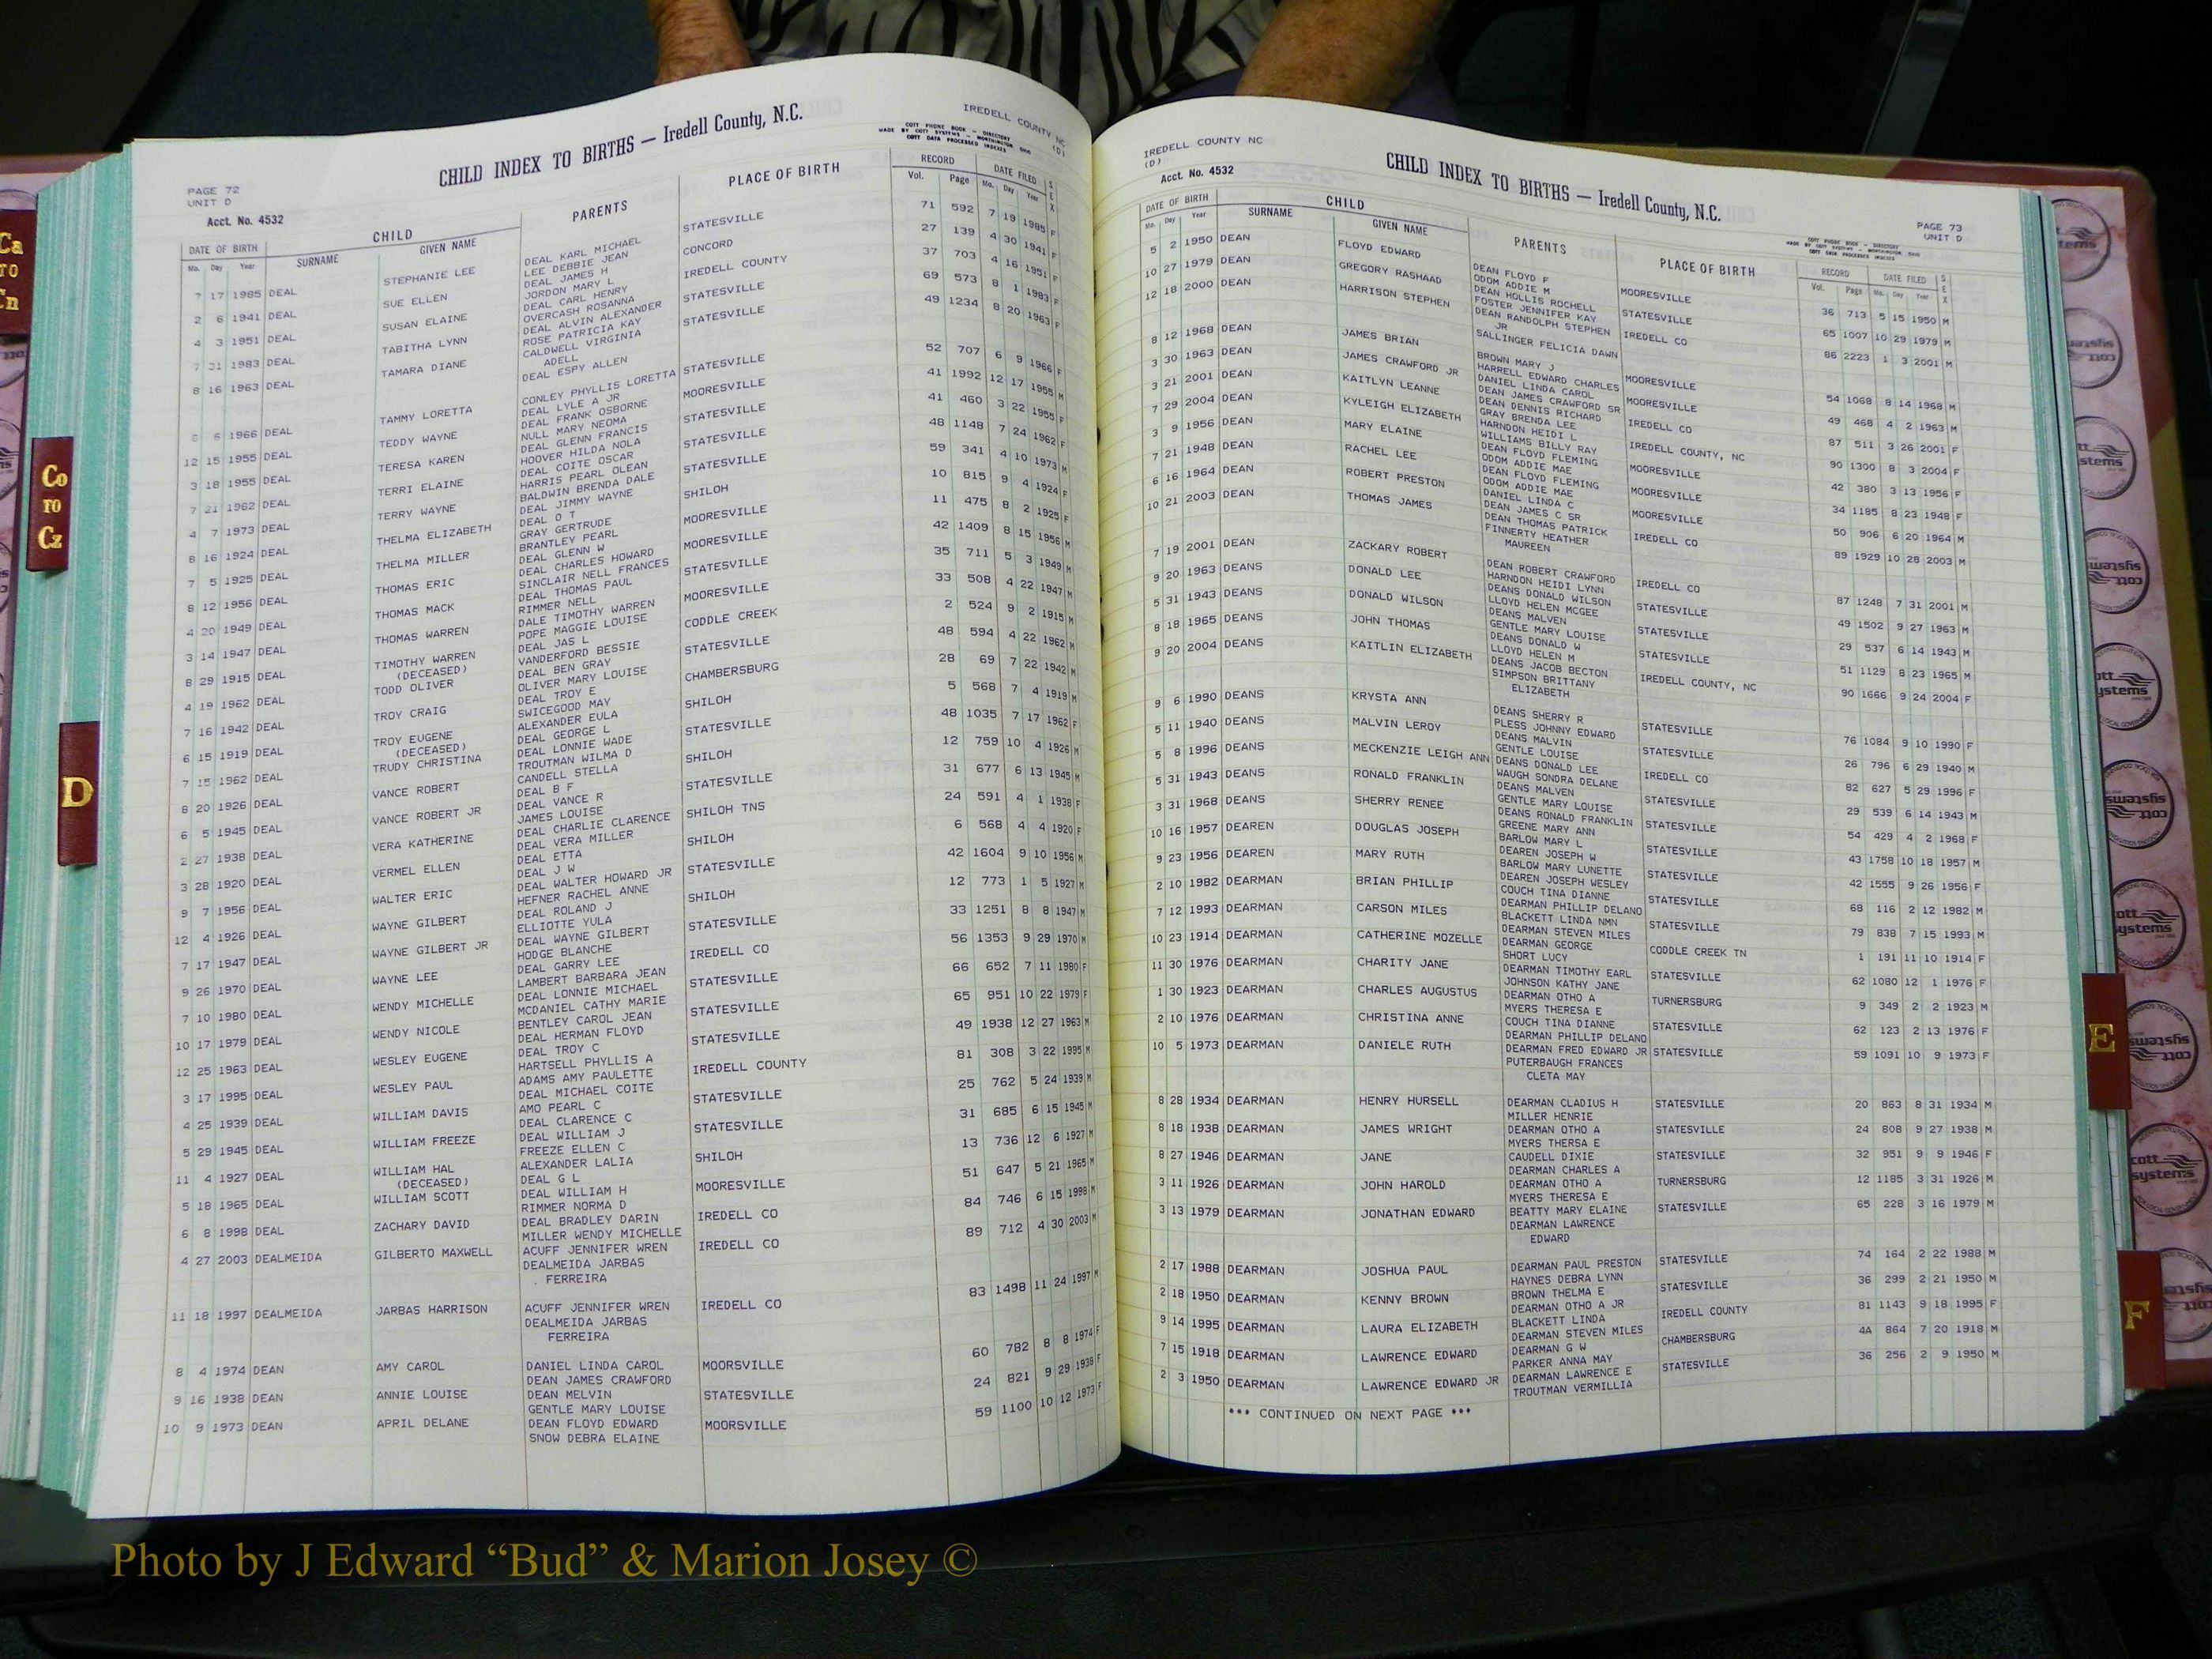 PAGE 72
UNIT D
Acct. No. 4532
CHILD INDEX TO BIRTHS — Iredell County, N.C.
IREDELL COUNTY NC
(D)
COTT PHONE BOOK – DIRECTORY
MADE BY COTT SYSTEMS – WORTHINGTON OHIO
COTT DATA PROCESSED INDEXES
DATE OF BIRTH CHILD PARENTS PLACE OF BIRTH RECORD DATE FILED SEX
Mo. Day Year SURNAME GIVEN NAME Vol. Page Mo. Day Year
7 17 1985 DEAL STEPHANIE LEE DEAL KARL MICHAEL STATESVILLE 71 592 7 19 1985 F
LEE DEBBIE JEAN
2 6 1941 DEAL SUE ELLEN DEAL JAMES H CONCORD 27 139 4 30 1941 F
JORDON MARY L
4 3 1951 DEAL SUSAN ELAINE DEAL CARL HENRY IREDELL COUNTY 37 703 4 16 1951 F
OVERCASH ROSANNA
7 31 1983 DEAL TABITHA LYNN DEAL ALVIN ALEXANDER STATESVILLE 69 573 8 1 1983 F
ROSE PATRICIA KAY
8 16 1963 DEAL TAMARA DIANE CALDWELL VIRGINIA STATESVILLE 49 1234 8 20 1963 F
ADELL
DEAL ESPY ALLEN
6 1966 DEAL TAMMY LORETTA CONLEY PHYLLIS LORETTA STATESVILLE 52 707 6 9 1966 F
DEAL LYLE A JR
12 15 1955 DEAL TEDDY WAYNE DEAL FRANK OSBORNE MOORESVILLE 41 1992 12 17 1955 M
NULL MARY NEOMA
3 18 1955 DEAL TERESA KAREN DEAL GLENN FRANCIS STATESVILLE 41 460 3 22 1955 F
HOOVER HILDA NOLA
7 21 1962 DEAL TERRI ELAINE DEAL COITE OSCAR STATESVILLE 48 1148 7 24 1962 F
HARRIS PEARL OLEAN
4 7 1973 DEAL TERRY WAYNE BALDWIN BRENDA DALE STATESVILLE 59 341 4 10 1973 M
DEAL JIMMY WAYNE
8 16 1924 DEAL THELMA ELIZABETH DEAL O T SHILOH 10 815 9 4 1924 F
GRAY GERTRUDE
7 5 1925 DEAL THELMA MILLER BRANTLEY PEARL MOORESVILLE 11 475 8 2 1925 F
DEAL GLENN W
8 12 1956 DEAL THOMAS ERIC DEAL CHARLES HOWARD MOORESVILLE 42 1409 8 15 1956 M
SINCLAIR NELL FRANCES
4 20 1949 DEAL THOMAS MACK DEAL THOMAS PAUL STATESVILLE 35 711 5 3 1949 M
RIMMER NELL
3 14 1947 DEAL THOMAS WARREN DALE TIMOTHY WARREN MOORESVILLE 33 508 4 22 1947 M
POPE MAGGIE LOUISE
8 29 1915 DEAL TIMOTHY WARREN DEAL JAS L CODDLE CREEK 2 524 9 2 1915 M
(DECEASED) VANDERFORD BESSIE
4 19 1962 DEAL TODD OLIVER DEAL BEN GRAY STATESVILLE 48 594 4 22 1962 M
OLIVER MARY LOUISE
7 16 1942 DEAL TROY CRAIG DEAL TROY E CHAMBERSBURG 28 69 7 22 1942 M
SWICEGOOD MAY
6 15 1919 DEAL TROY EUGENE ALEXANDER EULA SHILOH 5 568 7 4 1919 M
(DECEASED) DEAL GEORGE L
7 15 1962 DEAL TRUDY CHRISTINA DEAL LONNIE WADE STATESVILLE 48 1035 7 17 1962 F
TROUTMAN WILMA D
8 20 1926 DEAL VANCE ROBERT CANDELL STELLA SHILOH 12 759 10 4 1926 M
DEAL B F
6 5 1945 DEAL VANCE ROBERT JR DEAL VANCE R STATESVILLE 31 677 6 13 1945 M
JAMES LOUISE
2 27 1938 DEAL VERA KATHERINE DEAL CHARLIE CLARENCE SHILOH TNS 24 591 4 1 1938 F
DEAL VERA MILLER
3 28 1920 DEAL VERMEL ELLEN DEAL ETTA SHILOH 6 568 4 4 1920 F
DEAL J W
9 7 1956 DEAL WALTER ERIC DEAL WALTER HOWARD JR STATESVILLE 42 1604 9 10 1956 M
HEFNER RACHEL ANNE
12 4 1926 DEAL WAYNE GILBERT DEAL ROLAND J SHILOH 12 773 1 5 1927 M
ELLIOTTE YULA
7 17 1947 DEAL WAYNE GILBERT JR DEAL WAYNE GILBERT STATESVILLE 33 1251 8 8 1947 M
HODGE BLANCHE
9 26 1970 DEAL WAYNE LEE DEAL GARRY LEE IREDELL CO 56 1353 9 29 1970 M
LAMBERT BARBARA JEAN
7 10 1980 DEAL WENDY MICHELLE DEAL LONNIE MICHAEL STATESVILLE 66 652 7 11 1980 F
MCDANIEL CATHY MARIE
10 17 1979 DEAL WENDY NICOLE BENTLEY CAROL JEAN STATESVILLE 65 951 10 22 1979 F
DEAL HERMAN FLOYD
12 25 1963 DEAL WESLEY EUGENE DEAL TROY C STATESVILLE 49 1938 12 27 1963 M
HARTSELL PHYLLIS A
3 17 1995 DEAL WESLEY PAUL ADAMS AMY PAULETTE IREDELL COUNTY 81 308 3 22 1995 M
DEAL MICHAEL COITE
4 25 1939 DEAL WILLIAM DAVIS AMO PEARL C STATESVILLE 25 762 5 24 1939 M
DEAL CLARENCE C
5 29 1945 DEAL WILLIAM FREEZE DEAL WILLIAM J STATESVILLE 31 685 6 15 1945 M
FREEZE ELLEN C
11 4 1927 DEAL WILLIAM HAL ALEXANDER LALIA SHILOH 13 736 12 6 1927 M
(DECEASED) DEAL G L
5 18 1965 DEAL WILLIAM SCOTT DEAL WILLIAM H MOORESVILLE 51 647 5 21 1965 M
RIMMER NORMA D
6 8 1998 DEAL ZACHARY DAVID DEAL BRADLEY DARIN IREDELL CO 84 746 6 15 1998 M
MILLER WENDY MICHELLE
4 27 2003 DEALMEIDA GILBERTO MAXWELL ACUFF JENNIFER WREN IREDELL CO 89 712 4 30 2003 M
DEALMEIDA JARBAS
FERREIRA
11 18 1997 DEALMEIDA JARBAS HARRISON ACUFF JENNIFER WREN IREDELL CO 83 1498 11 24 1997 M
DEALMEIDA JARBAS
FERREIRA
8 4 1974 DEAN AMY CAROL DANIEL LINDA CAROL MOORSVILLE 60 782 8 8 1974 F
DEAN JAMES CRAWFORD
9 16 1938 DEAN ANNIE LOUISE DEAN MELVIN STATESVILLE 24 821 9 29 1938 F
GENTLE MARY LOUISE
10 9 1973 DEAN APRIL DELANE DEAN FLOYD EDWARD MOORSVILLE 59 1100 10 12 1973 F
SNOW DEBRA ELAINE
IREDELL COUNTY NC
(D)
Acct. No. 4532
CHILD INDEX TO BIRTHS — Iredell County, N.C.
PAGE 73
UNIT D
COTT PHONE BOOK – DIRECTORY
MADE BY COTT SYSTEMS – WORTHINGTON OHIO
COTT DATA PROCESSED INDEXES
DATE OF BIRTH CHILD PARENTS PLACE OF BIRTH RECORD DATE FILED SEX
Mo. Day Year SURNAME GIVEN NAME Vol. Page Mo. Day Year
5 2 1950 DEAN FLOYD EDWARD DEAN FLOYD F MOORESVILLE 36 713 5 15 1950 M
ODOM ADDIE M
10 27 1979 DEAN GREGORY RASHAAD DEAN HOLLIS ROCHELL STATESVILLE 65 1007 10 29 1979 M
FOSTER JENNIFER KAY
12 18 2000 DEAN HARRISON STEPHEN DEAN RANDOLPH STEPHEN IREDELL CO 86 2223 1 3 2001 M
JR
SALLINGER FELICIA DAWN
8 12 1968 DEAN JAMES BRIAN BROWN MARY J MOORESVILLE 54 1068 8 14 1968 M
HARRELL EDWARD CHARLES
3 30 1963 DEAN JAMES CRAWFORD JR DANIEL LINDA CAROL MOORESVILLE 49 468 4 2 1963 M
DEAN JAMES CRAWFORD SR
3 21 2001 DEAN KAITLYN LEANNE DEAN DENNIS RICHARD IREDELL CO 87 511 3 26 2001 F
GRAY BRENDA LEE
7 29 2004 DEAN KYLEIGH ELIZABETH HARNDON HEIDI L IREDELL COUNTY, NC 90 1300 8 3 2004 F
WILLIAMS BILLY RAY
3 9 1956 DEAN MARY ELAINE DEAN FLOYD FLEMING MOORESVILLE 42 380 3 13 1956 F
ODOM ADDIE MAE
7 21 1948 DEAN RACHEL LEE DEAN FLOYD FLEMING MOORESVILLE 34 1185 8 23 1948 F
ODOM ADDIE MAE
6 16 1964 DEAN ROBERT PRESTON DANIEL LINDA C MOORESVILLE 50 906 6 20 1964 M
DEAN JAMES C SR
10 21 2003 DEAN THOMAS JAMES DEAN THOMAS PATRICK IREDELL CO 89 1929 10 28 2003 M
FINNERTY HEATHER
MAUREEN
7 19 2001 DEAN ZACKARY ROBERT DEAN ROBERT CRAWFORD IREDELL CO 87 1248 7 31 2001 M
HARNDON HEIDI LYNN
9 20 1963 DEANS DONALD LEE DEANS DONALD WILSON STATESVILLE 49 1502 9 27 1963 M
LLOYD HELEN MCGEE
5 31 1943 DEANS DONALD WILSON DEANS MALVEN STATESVILLE 29 537 6 14 1943 M
GENTLE MARY LOUISE
8 18 1965 DEANS JOHN THOMAS DEANS DONALD W STATESVILLE 51 1129 8 23 1965 M
LLOYD HELEN M
9 20 2004 DEANS KAITLIN ELIZABETH DEANS JACOB BECTON IREDELL COUNTY, NC 90 1666 9 24 2004 F
SIMPSON BRITTANY
ELIZABETH
9 6 1990 DEANS KRYSTA ANN DEANS SHERRY R STATESVILLE 76 1084 9 10 1990 F
PLESS JOHNNY EDWARD
5 11 1940 DEANS MALVIN LEROY DEANS MALVIN STATESVILLE 26 796 6 29 1940 M
GENTLE LOUISE
5 8 1996 DEANS MECKENZIE LEIGH ANN DEANS DONALD LEE IREDELL CO 82 627 5 29 1996 F
WAUGH SONDRA DELANE
5 31 1943 DEANS RONALD FRANKLIN DEANS MALVEN STATESVILLE 29 539 6 14 1943 M
GENTLE MARY LOUISE
3 31 1968 DEANS SHERRY RENEE DEANS RONALD FRANKLIN STATESVILLE 54 429 4 2 1968 F
GREENE MARY ANN
10 16 1957 DEAREN DOUGLAS JOSEPH BARLOW MARY L STATESVILLE 43 1758 10 18 1957 M
DEAREN JOSEPH W
9 23 1956 DEAREN MARY RUTH BARLOW MARY LUNETTE STATESVILLE 42 1555 9 26 1956 F
DEAREN JOSEPH WESLEY
2 10 1982 DEARMAN BRIAN PHILLIP COUCH TINA DIANNE STATESVILLE 68 116 2 12 1982 M
DEARMAN PHILLIP DELANO
7 12 1993 DEARMAN CARSON MILES BLACKETT LINDA NMN STATESVILLE 79 838 7 15 1993 M
DEARMAN STEVEN MILES
10 23 1914 DEARMAN CATHERINE MOZELLE DEARMAN GEORGE CODDLE CREEK TN 1 191 11 10 1914 F
SHORT LUCY
11 30 1976 DEARMAN CHARITY JANE DEARMAN TIMOTHY EARL STATESVILLE 62 1080 12 1 1976 F
JOHNSON KATHY JANE
1 30 1923 DEARMAN CHARLES AUGUSTUS DEARMAN OTHO A TURNERSBURG 9 349 2 2 1923 M
MYERS THERESA E
2 10 1976 DEARMAN CHRISTINA ANNE COUCH TINA DIANNE STATESVILLE 62 123 2 13 1976 F
DEARMAN PHILLIP DELANO
10 5 1973 DEARMAN DANIELE RUTH DEARMAN FRED EDWARD JR STATESVILLE 59 1091 10 9 1973 F
PUTERBAUGH FRANCES
CLETA MAY
8 28 1934 DEARMAN HENRY HURSELL DEARMAN CLADIUS H STATESVILLE 20 863 8 31 1934 M
MILLER HENRIE
8 18 1938 DEARMAN JAMES WRIGHT DEARMAN OTHO A STATESVILLE 24 808 9 27 1938 M
MYERS THERSA E
8 27 1946 DEARMAN JANE CAUDELL DIXIE STATESVILLE 32 951 9 9 1946 F
DEARMAN CHARLES A
3 11 1926 DEARMAN JOHN HAROLD DEARMAN OTHO A TURNERSBURG 12 1185 3 31 1926 M
MYERS THERESA E
3 13 1979 DEARMAN JONATHAN EDWARD BEATTY MARY ELAINE STATESVILLE 65 228 3 16 1979 M
DEARMAN LAWRENCE
EDWARD
2 17 1988 DEARMAN JOSHUA PAUL DEARMAN PAUL PRESTON STATESVILLE 74 164 2 22 1988 M
HAYNES DEBRA LYNN
2 18 1950 DEARMAN KENNY BROWN BROWN THELMA E STATESVILLE 36 299 2 21 1950 M
DEARMAN OTHO A JR
9 14 1995 DEARMAN LAURA ELIZABETH BLACKETT LINDA IREDELL COUNTY 81 1143 9 18 1995 F
DEARMAN STEVEN MILES
7 15 1918 DEARMAN LAWRENCE EDWARD DEARMAN G W CHAMBERSBURG 4A 864 7 20 1918 M
PARKER ANNA MAY
2 3 1950 DEARMAN LAWRENCE EDWARD JR DEARMAN LAWRENCE E STATESVILLE 36 256 2 9 1950 M
TROUTMAN VERMILLIA
*** CONTINUED ON NEXT PAGE ***
Ca
TO
Cn
Co
TO
Cz
D
E
F
cott
systems
Photo by J Edward “Bud” & Marion Josey ©